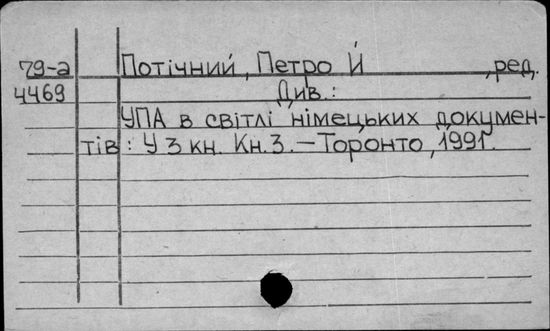 79-а Потічний, Петро Й ,ред.
4469 Див.:
УПА в світлі німецьких докумен-
тів: У 3 кн. Кн.3.—Торонто, 1991.